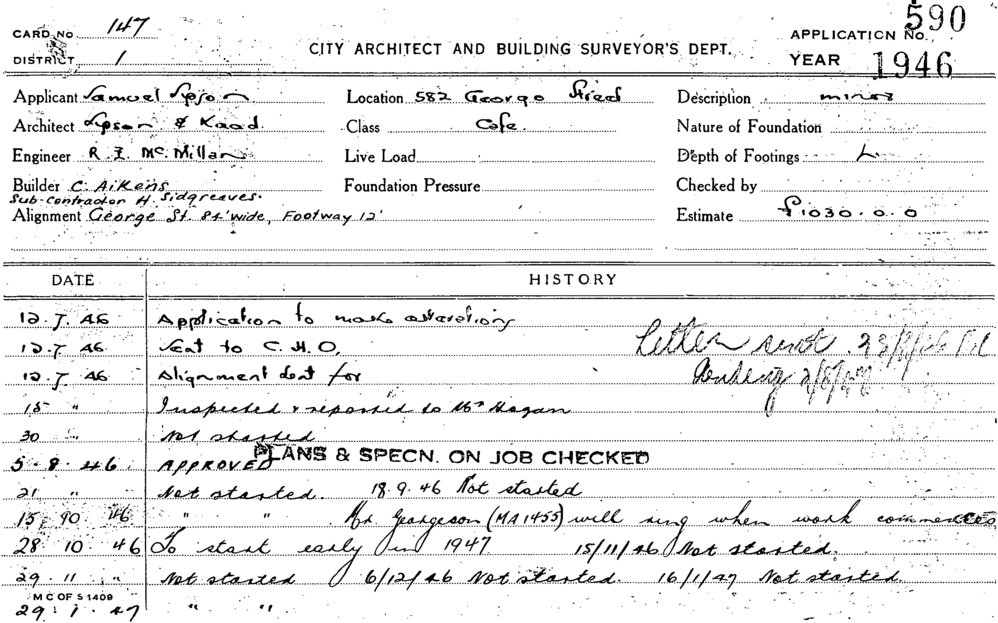 CARD No 147
DISTRICT 1
CITY ARCHITECT AND BUILDING SURVEYOR'S DEPT.
APPLICATION No. 590
YEAR 1946
Applicant Samuel Lipson
Location 582 George Street
Description minor
Architect Lipson & Kaad.
Class Cafe.
Nature of Foundation
Engineer R. E. McMillan
Live Load
Depth of Footings
Builder C. Aikens
Sub-contractor H. Sidgreaves.
Foundation Pressure
Checked by
Alignment George St. 84' wide, Footway 12'
Estimate £1030.0.0
DATE HISTORY
12.7.46 Application to make alterations
12.7.46 Sent to C.H.O. Letter sent
12.7.46 Alignment sent for 2/8/46
15 " Inspected & reported to Mr Hogan
30 " Not started
5.8.46 APPROVED PLANS & SPECN. ON JOB CHECKED
21 " Not started. 18.9.46 Not started
15.10.46 " " Mr Georgeson (MA1455) will ring when work commences
28.10.46 To start early in 1947 15/11/46 Not started.
29.11 " Not started 6/12/46 Not started. 16/1/47 Not started.
M C OF S 1409
29.1.47 " "